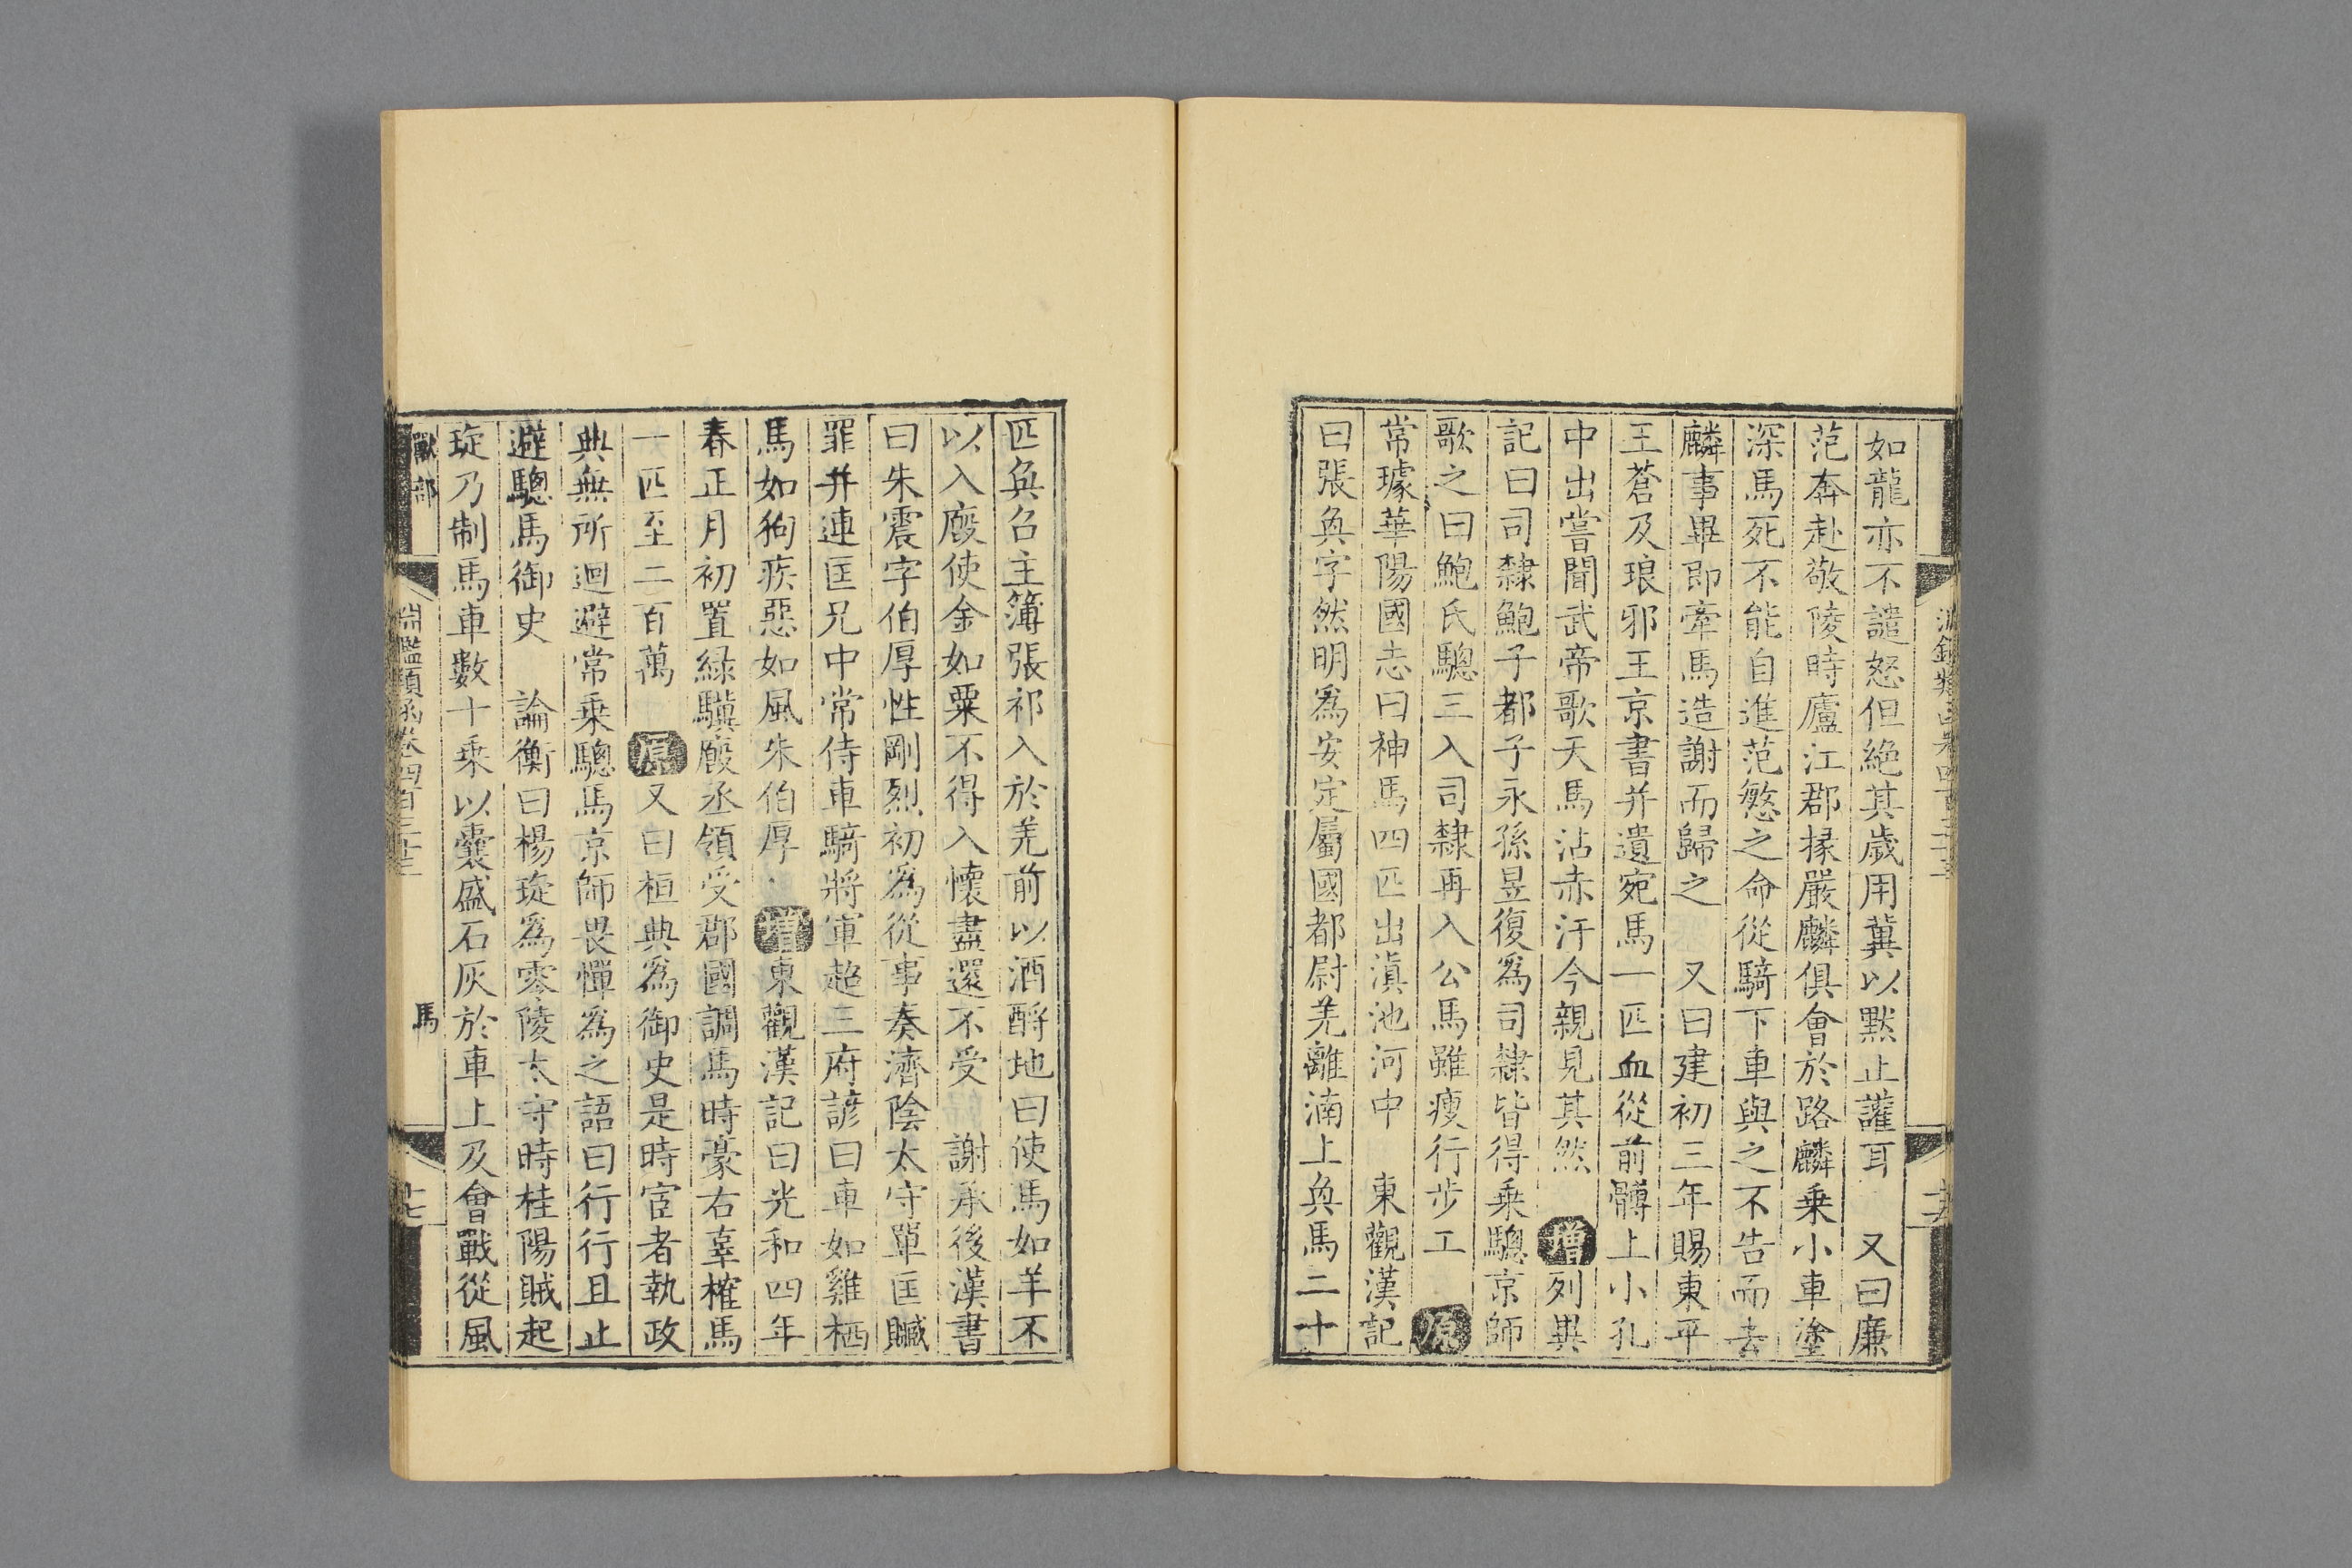 如龍亦不譴怒但絶其歲用冀以默止讙耳　又曰廉
范奔赴敬陵時廬江郡掾嚴麟俱會於路麟乗小車塗
深馬死不能自進范愍之命從騎下車與之不告而去
麟事畢即牽馬造謝而歸之　又曰建初三年賜東平
王蒼及琅邪王京書并遺宛馬一匹血從前髆上小孔
中出嘗聞武帝歌天馬沾赤汗今親見其然　增列異
記曰司隸鮑子都子永孫昱復爲司隸皆得乗驄京師
歌之曰鮑氏驄三入司隸再入公馬雖瘦行步工　原
常璩華陽國志曰神馬四匹出滇池河中　東觀漢記
曰張奐字然明爲安定屬國都尉羌離湳上奐馬二十
匹奐召主簿張祁入於羌前以酒酹地曰使馬如羊不
以入廐使金如粟不得入懷盡還不受　謝承後漢書
曰朱震字伯厚性剛烈初爲從事奏濟陰太守單匡贓
罪并連匡兄中常侍車騎將軍超三府諺曰車如雞栖
馬如狗疾惡如風朱伯厚　增東觀漢記曰光和四年
春正月初置緑驥廐丞領受郡國調馬時豪右辜榷馬
一匹至二百萬　原又曰桓典爲御史是時宦者執政
典無所迴避常乗驄馬京師畏憚爲之語曰行行且止
避驄馬御史　論衡曰楊琁爲零陵太守時桂陽賊起
琁乃制馬車數十乗以囊盛石灰於車上及會戰從風
獸部　淵鑑類函卷四百三十三　馬　十七